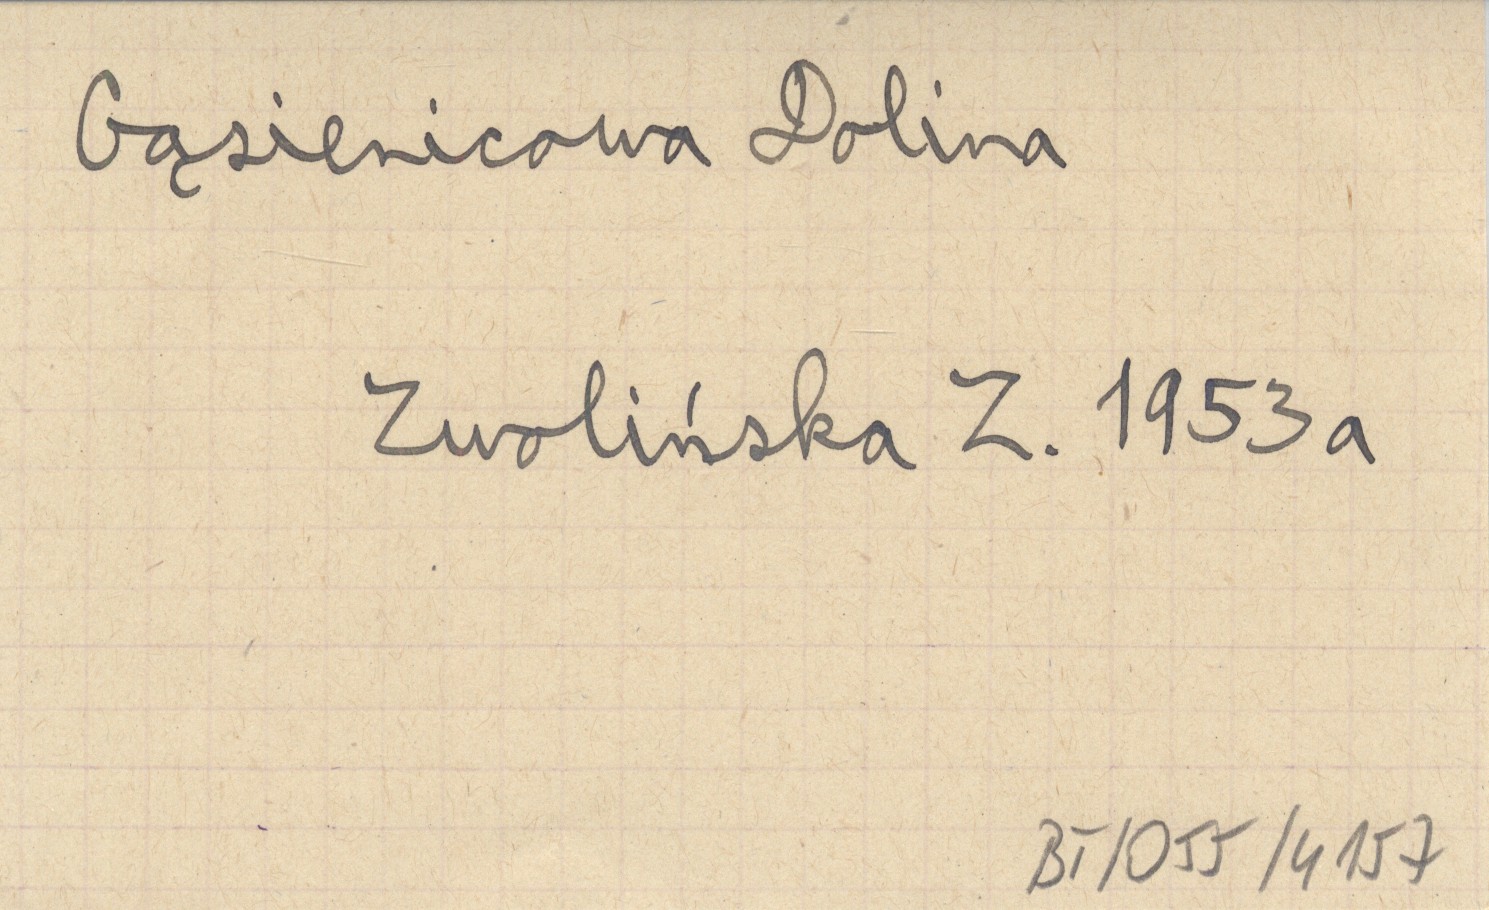 Gąsienicowa Dolina
Zwolińska Z. 1953a
BT/055/4157